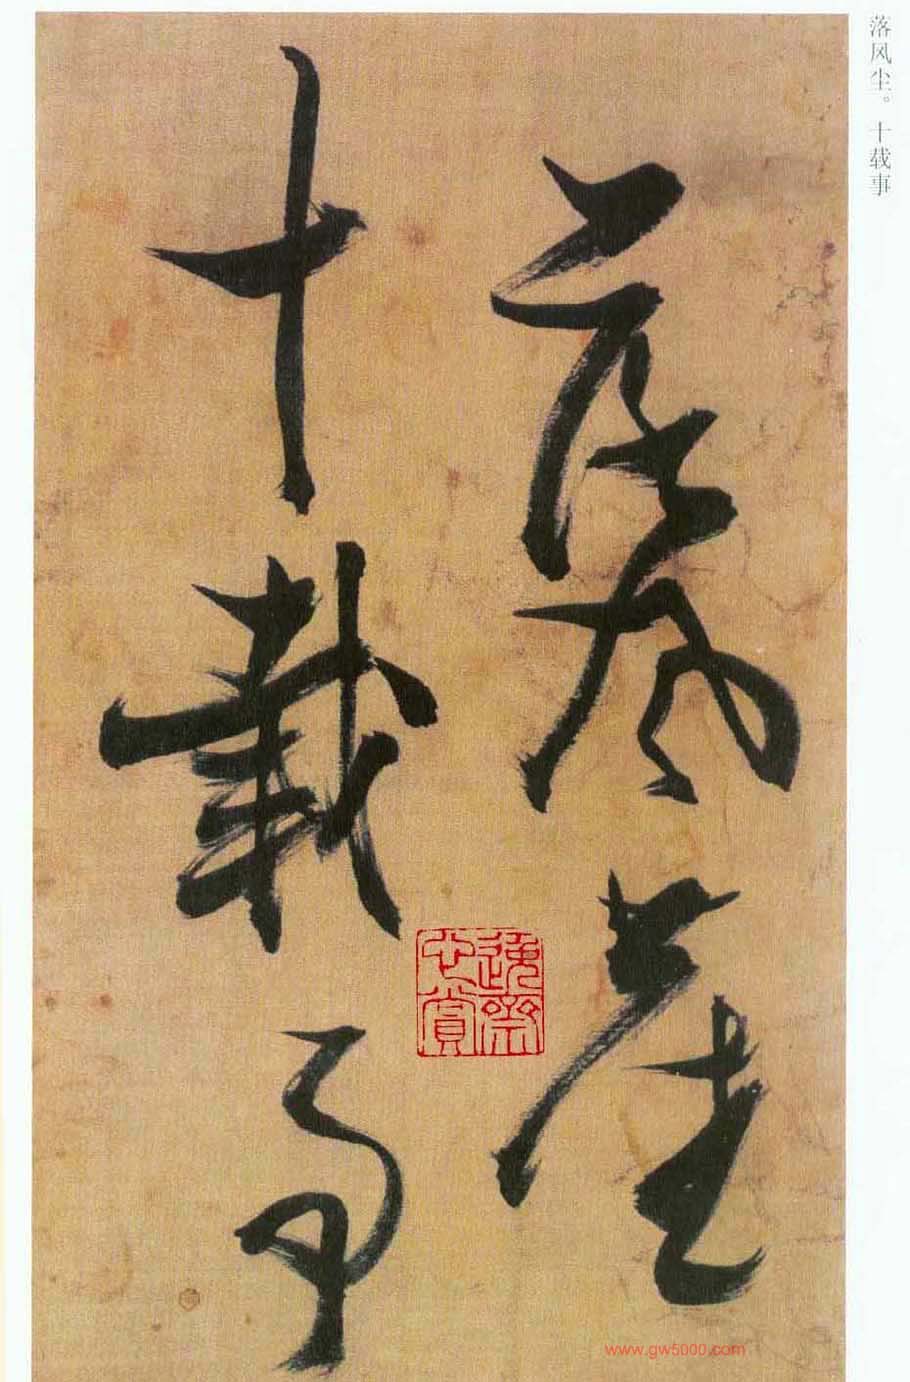 落风尘。十载事
落風塵
十載事
www.gw5000.com